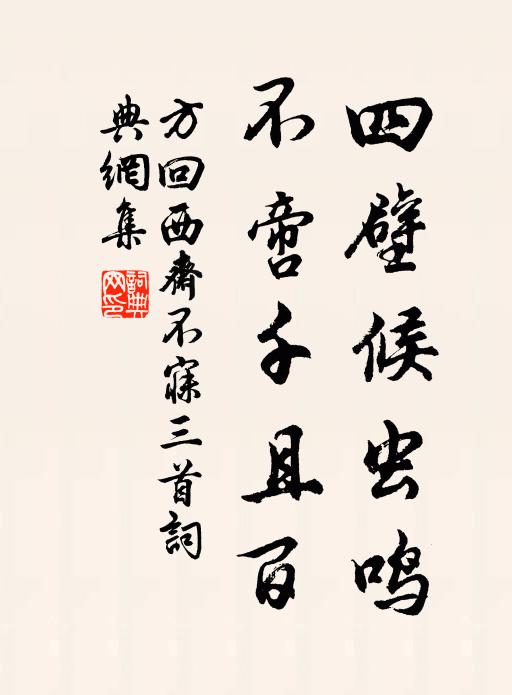 四壁候虫鸣
不啻千且百
方回西斋不寐三首詞
典網集
詞典網印